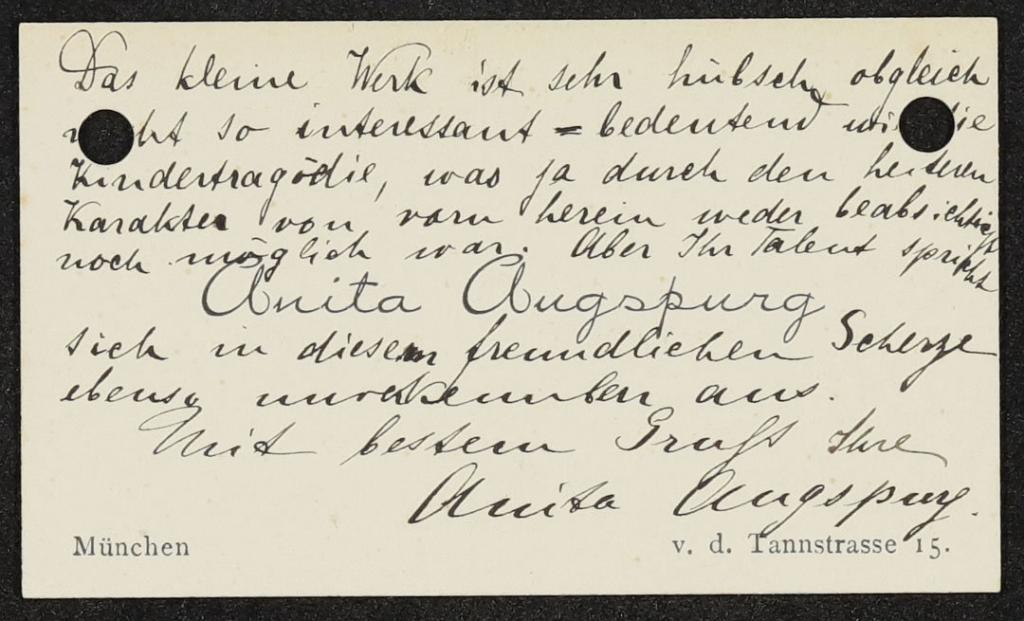 Das kleine Werk ist sehr hübsch, obgleich
nicht so interessant = bedeutend wie die
Kindertragödie, was ja durch den heiteren
Karakter von vorn herein weder beabsichtigt
noch möglich war. Aber Ihr Talent spricht
Anita Augspurg
sich in diesem freundlichen Scherze
ebenso unverkennbar aus.
Mit bestem Gruß Ihre
Anita Augspurg.
München v. d. Tannstrasse 15.